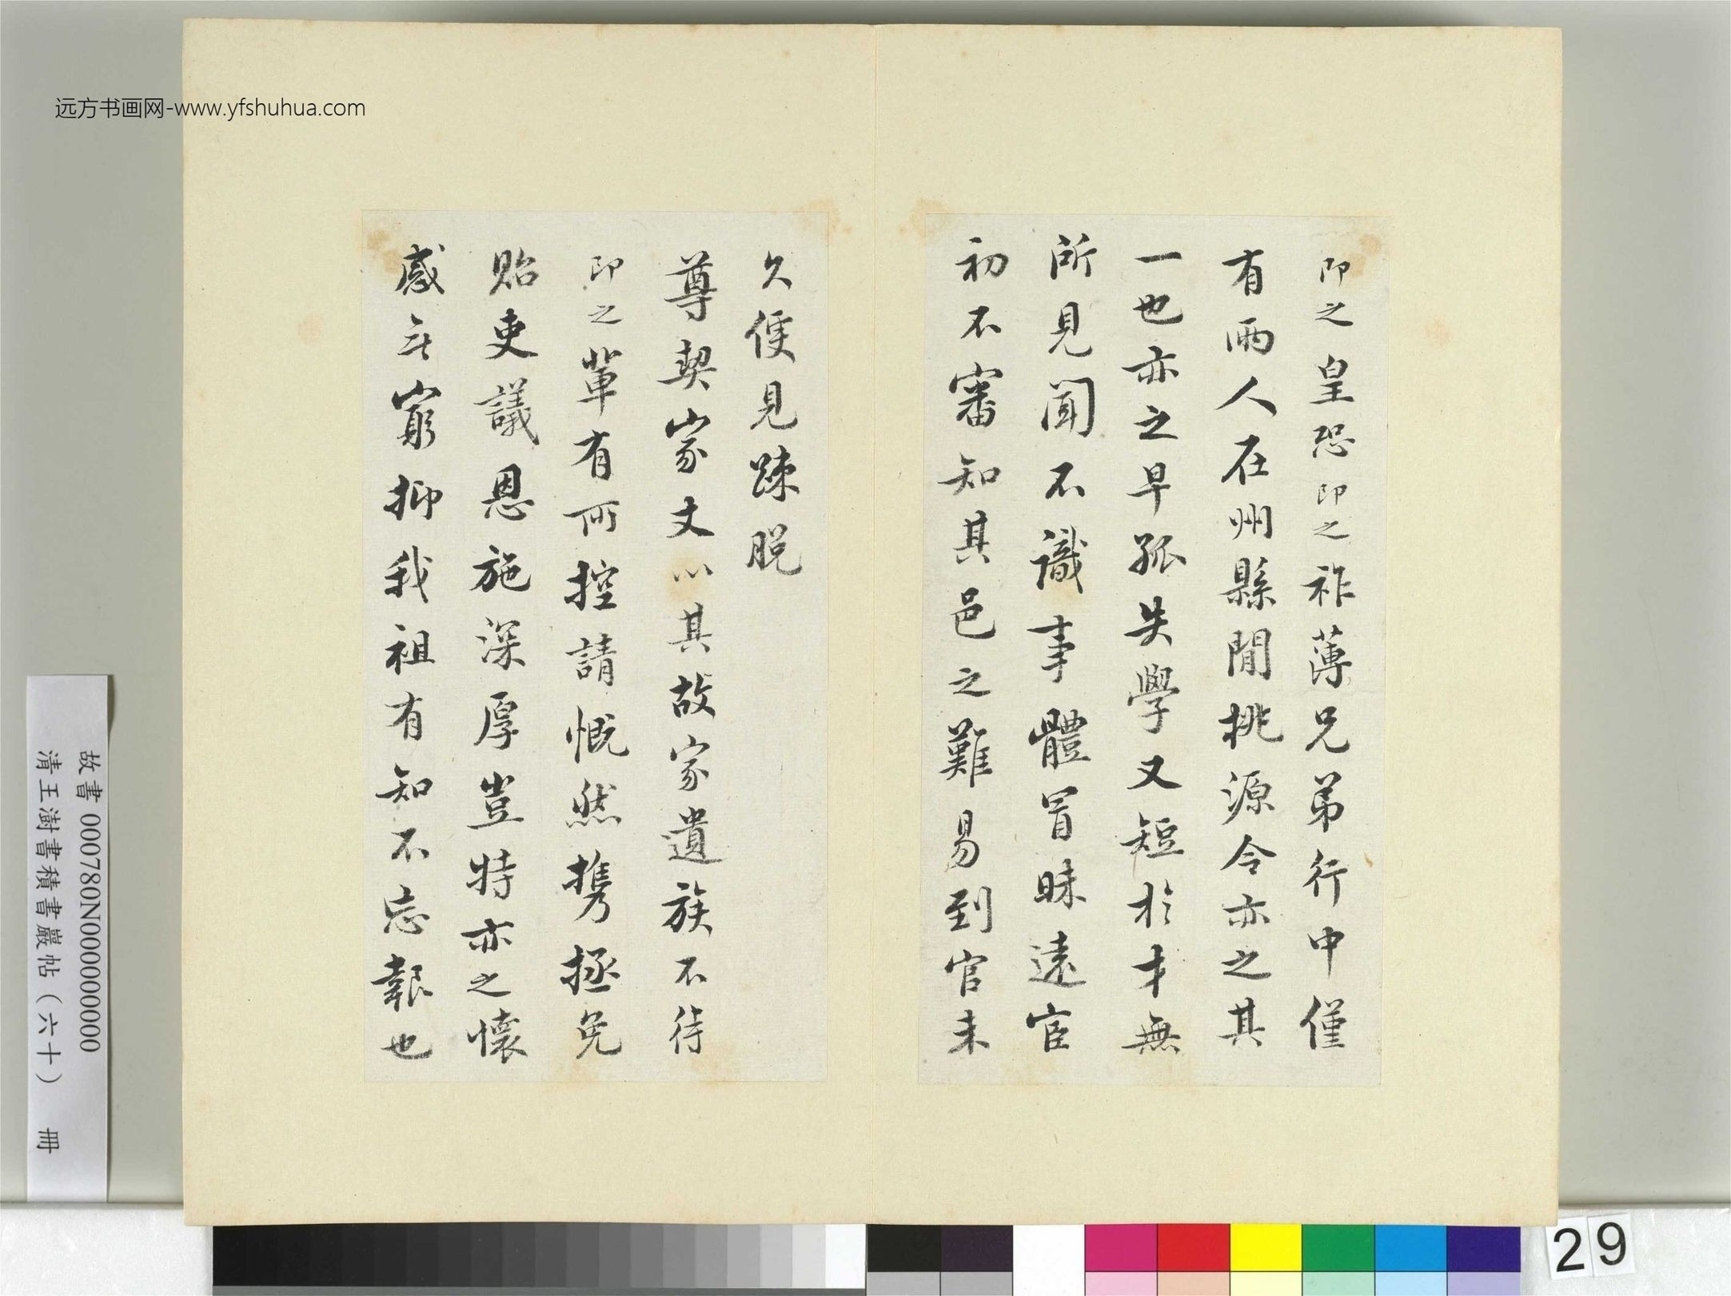 即之皇恐即之祚薄兄弟行中僅
有兩人在州縣間桃源令亦之其
一也亦之早孤失學又短於才無
所見聞不識事體冒昧遠宦
初不審知其邑之難易到官未
久便見疎脫
尊契家丈以其故家遺族不待
即之輩有所控請慨然攜拯免
貽吏議恩施深厚豈特亦之懷
感無窮抑我祖有知不忘報也
远方书画网-www.yfshuhua.com
故書 000780N000000000
清王澍書積書巖帖(六十) 冊
29